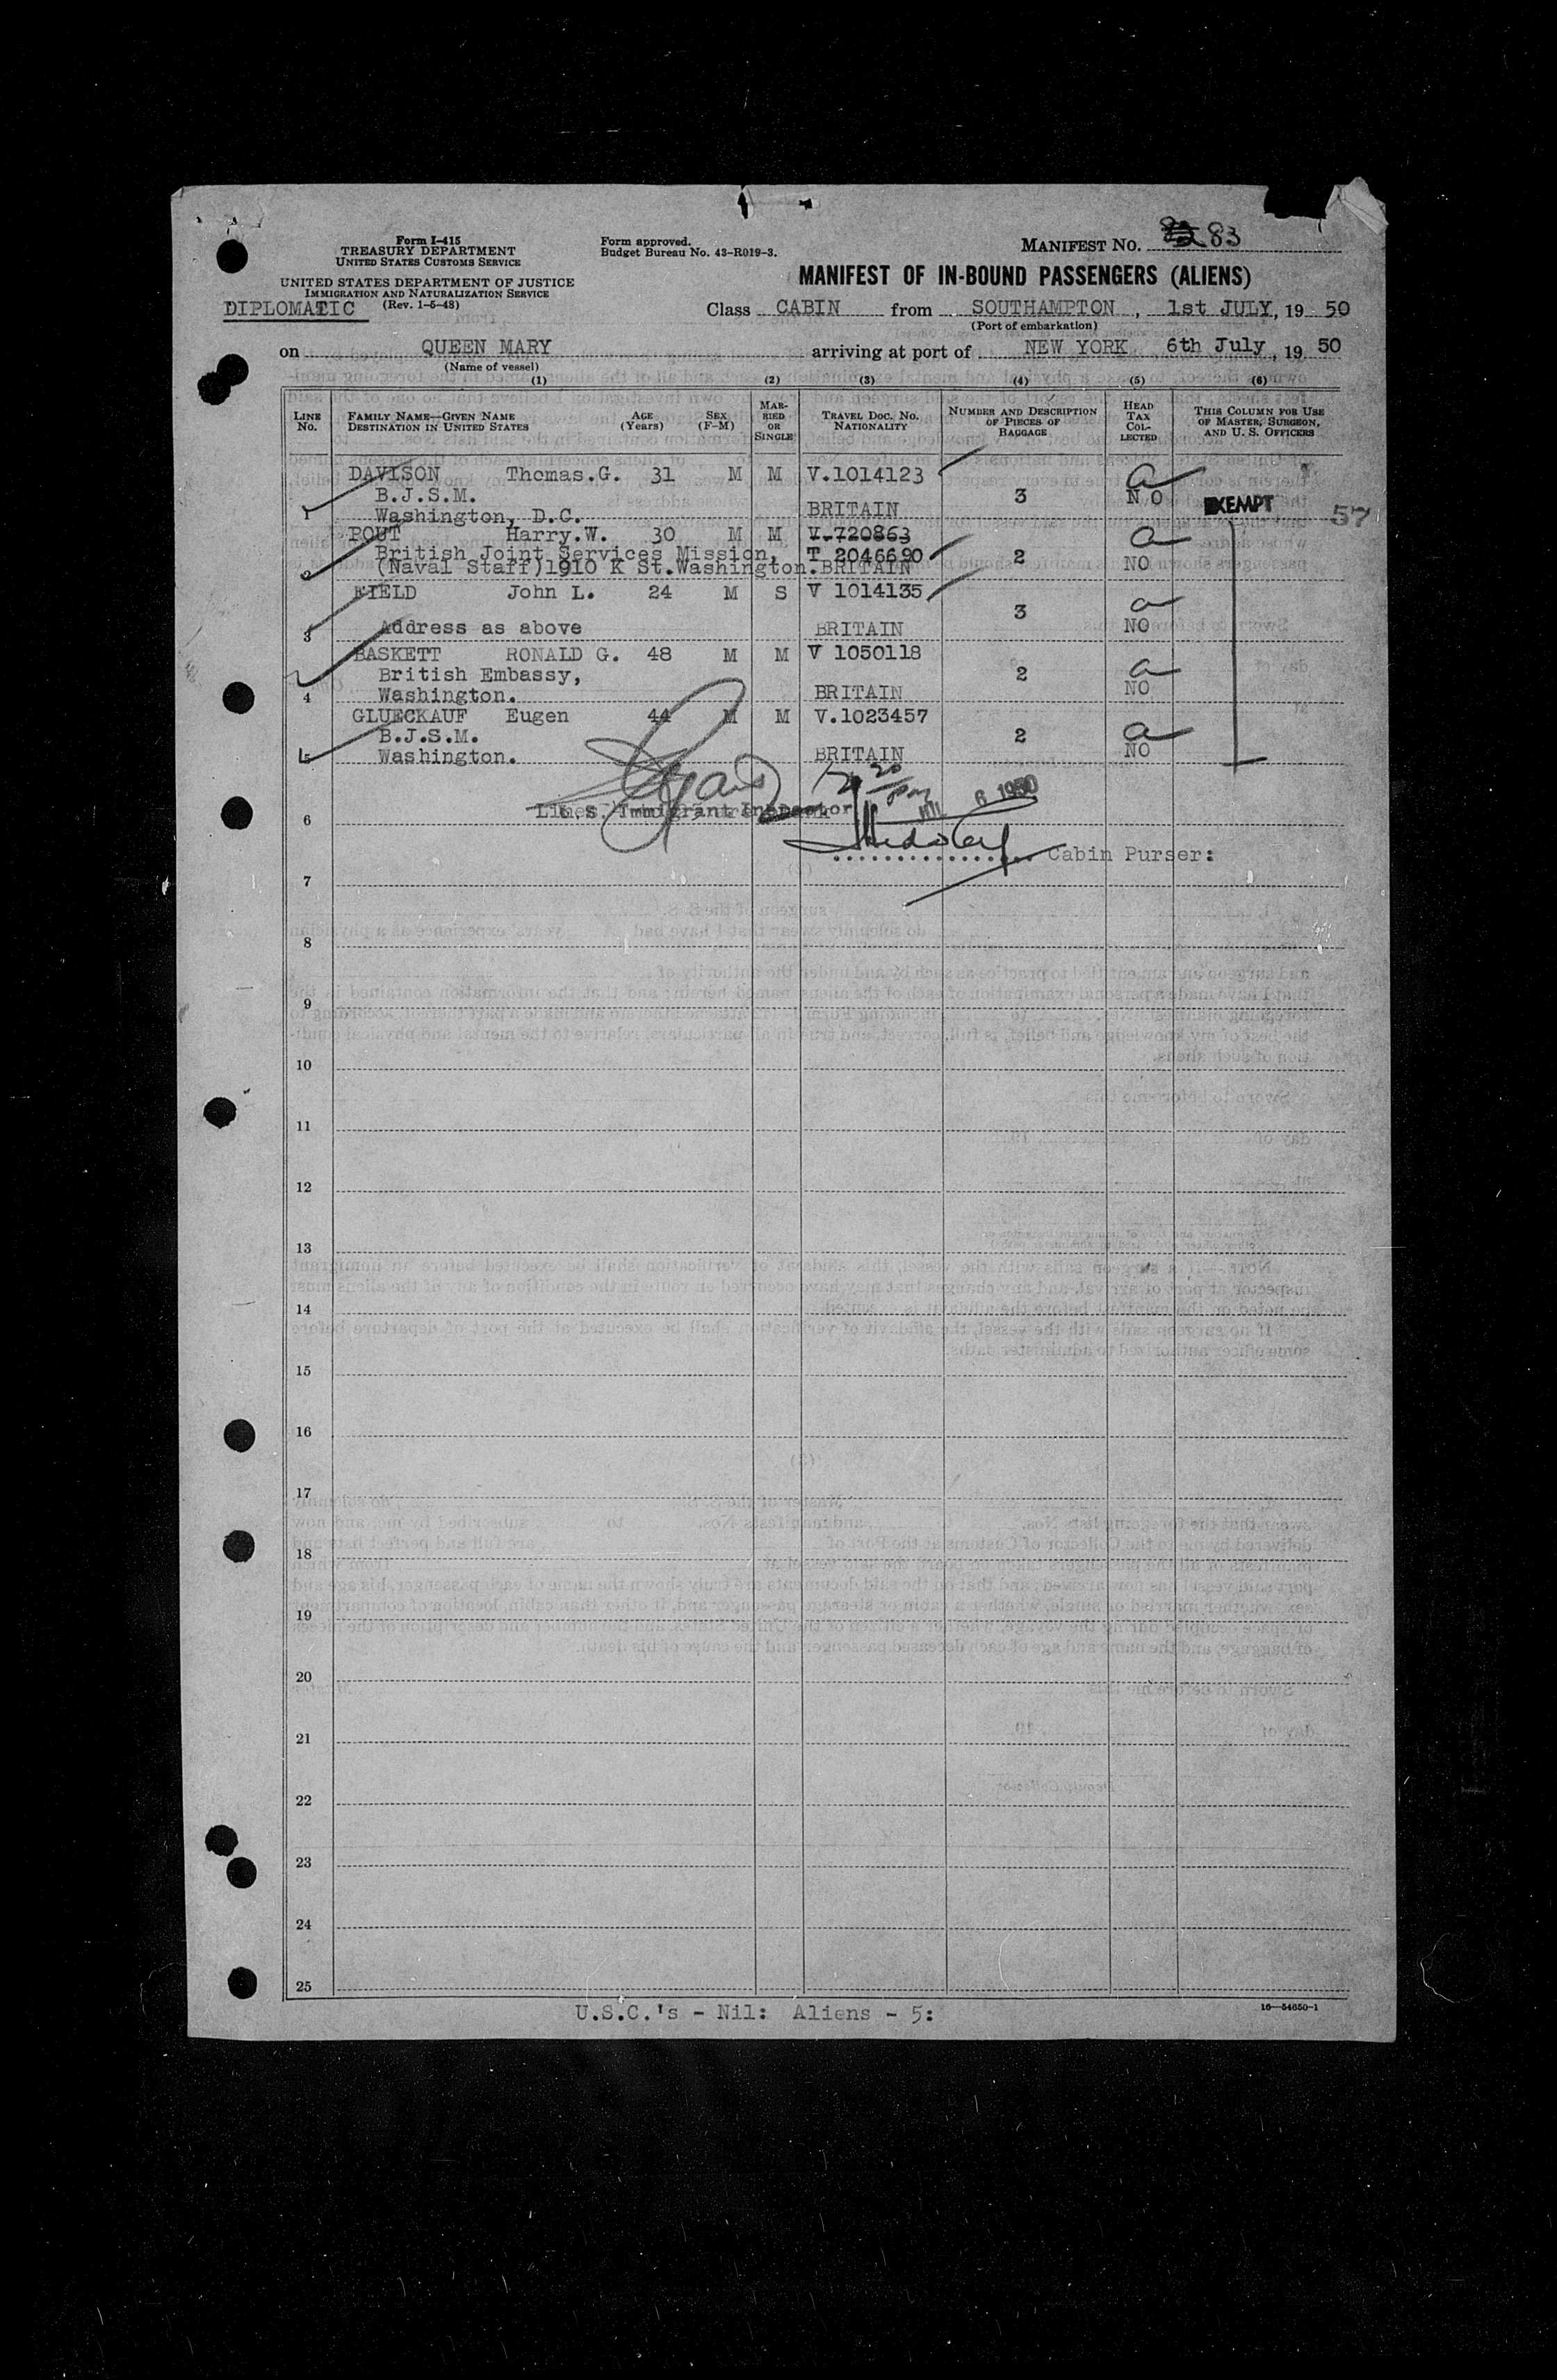 Form I-415
TREASURY DEPARTMENT
UNITED STATES CUSTOMS SERVICE
UNITED STATES DEPARTMENT OF JUSTICE
IMMIGRATION AND NATURALIZATION SERVICE
(Rev. 1-5-48)
DIPLOMATIC
Form approved.
Budget Bureau No. 43-R019-3.
MANIFEST NO. 83
MANIFEST OF IN-BOUND PASSENGERS (ALIENS)
Class CABIN from SOUTHAMPTON, 1st JULY, 19 50
(Port of embarkation)
on QUEEN MARY arriving at port of NEW YORK 6th July, 19 50
(Name of vessel)
(1) (2) (3) (4) (5) (6)
LINE No. FAMILY NAME—GIVEN NAME DESTINATION IN UNITED STATES AGE (Years) SEX (F-M) MARRIED OR SINGLE TRAVEL DOC. NO. NATIONALITY NUMBER AND DESCRIPTION OF PIECES OF BAGGAGE HEAD TAX COLLECTED THIS COLUMN FOR USE OF MASTER, SURGEON, AND U. S. OFFICERS
DAVISON Thomas.G. 31 M M V.1014123
B.J.S.M. 3 NO EXEMPT
1 Washington, D.C. BRITAIN 57
POUT Harry.W. 30 M M V.720863
British Joint Services Mission, T 2046690 2 NO
2 (Naval Staff)1910 K St.Washington. BRITAIN
FIELD John L. 24 M S V 1014135
3 Address as above BRITAIN 3 NO
BASKETT RONALD G. 48 M M V 1050118
British Embassy, 2 NO
4 Washington. BRITAIN
GLUECKAUF Eugen 44 M M V.1023457
B.J.S.M. 2 NO
5 Washington. BRITAIN
JUL 6 1950
6 U.S. Immigrant Inspector
Cabin Purser:
7
8
9
10
11
12
13
14
15
16
17
18
19
20
21
22
23
24
25
U.S.C.'s - Nil: Aliens - 5:
16—54650-1